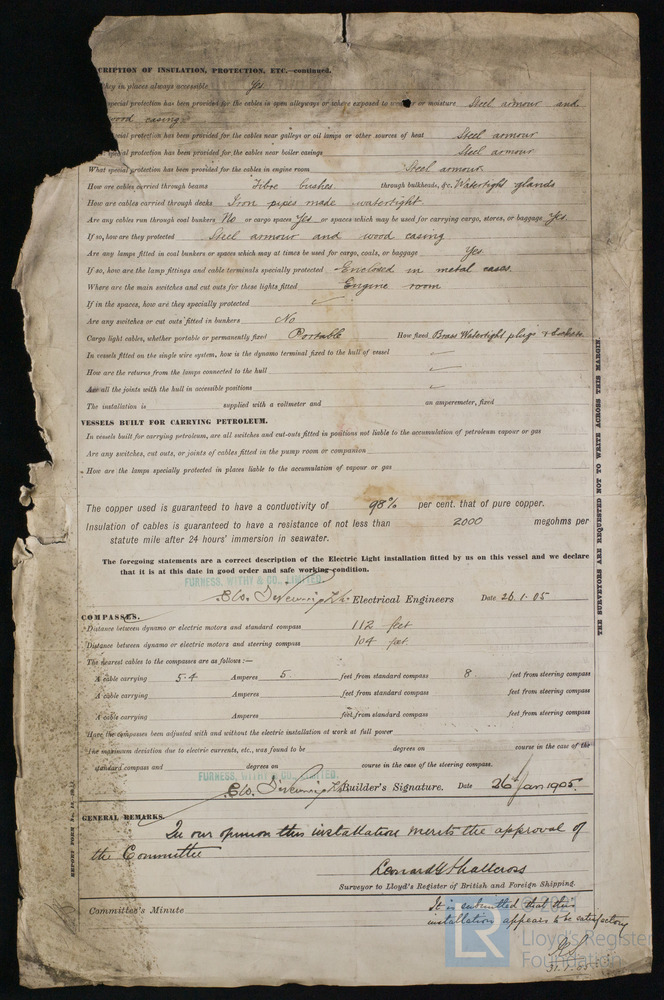 CRIPTION OF INSULATION, PROTECTION, ETC.—continued.
they in places always accessible Yes
special protection has been provided for the cables in open alleyways or where exposed to weather or moisture Steel armour and
wood casing
special protection has been provided for the cables near galleys or oil lamps or other sources of heat Steel armour
special protection has been provided for the cables near boiler casings Steel armour
What special protection has been provided for the cables in engine room Steel armour
How are cables carried through beams Fibre bushes through bulkheads, &c. Watertight glands
How are cables carried through decks Iron pipes made watertight
Are any cables run through coal bunkers No or cargo spaces Yes or spaces which may be used for carrying cargo, stores, or baggage Yes
If so, how are they protected Steel armour and wood casing
Are any lamps fitted in coal bunkers or spaces which may at times be used for cargo, coals, or baggage Yes
If so, how are the lamp fittings and cable terminals specially protected Enclosed in metal cases.
Where are the main switches and cut outs for these lights fitted Engine room
If in the spaces, how are they specially protected ✓
Are any switches or cut outs fitted in bunkers No
Cargo light cables, whether portable or permanently fixed Portable How fixed Brass Watertight plugs & Sockets
In vessels fitted on the single wire system, how is the dynamo terminal fixed to the hull of vessel ✓
How are the returns from the lamps connected to the hull ✓
Are all the joints with the hull in accessible positions ✓
The installation is supplied with a voltmeter and an amperemeter, fixed
VESSELS BUILT FOR CARRYING PETROLEUM.
In vessels built for carrying petroleum, are all switches and cut-outs fitted in positions not liable to the accumulation of petroleum vapour or gas
Are any switches, cut outs, or joints of cables fitted in the pump room or companion
How are the lamps specially protected in places liable to the accumulation of vapour or gas
The copper used is guaranteed to have a conductivity of 98% per cent. that of pure copper.
Insulation of cables is guaranteed to have a resistance of not less than 2000 megohms per
statute mile after 24 hours' immersion in seawater.
The foregoing statements are a correct description of the Electric Light installation fitted by us on this vessel and we declare
that it is at this date in good order and safe working condition.
FURNESS, WITHY & CO., LIMITED.
Electrical Engineers Date 26.1.05
COMPASSES.
Distance between dynamo or electric motors and standard compass 112 feet
Distance between dynamo or electric motors and steering compass 104 feet
The nearest cables to the compasses are as follows:—
A cable carrying 5.4 Amperes 5. feet from standard compass 8 feet from steering compass
A cable carrying Amperes feet from standard compass feet from steering compass
A cable carrying Amperes feet from standard compass feet from steering compass
Have the compasses been adjusted with and without the electric installation at work at full power
The maximum deviation due to electric currents, etc., was found to be degrees on course in the case of the
standard compass and degrees on course in the case of the steering compass.
FURNESS, WITHY & CO., LIMITED.
Builder's Signature. Date 26th Jan 1905.
GENERAL REMARKS.
In our opinion this installation merits the approval of
the Committee
Leonard G Shallcross
Surveyor to Lloyd's Register of British and Foreign Shipping.
Committee's Minute
It is submitted that this
installation appears to be satisfactory
31.1.05
THE SURVEYORS ARE REQUESTED NOT TO WRITE ACROSS THIS MARGIN.
LR
Lloyd's Register
Foundation